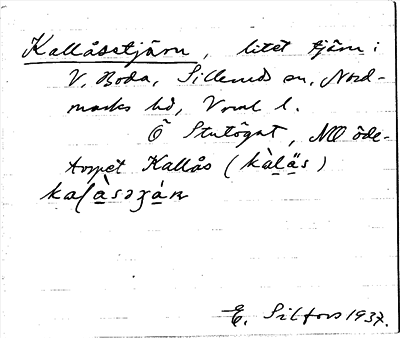 Kallåsetjärn, litet tjärn i
V. Boda, Sillerud sn, Nord-
marks hd, Vrml l.
Ö Stutögat, NO öde-
torpet Kallås (kàlås)
E. Silfors 1937.